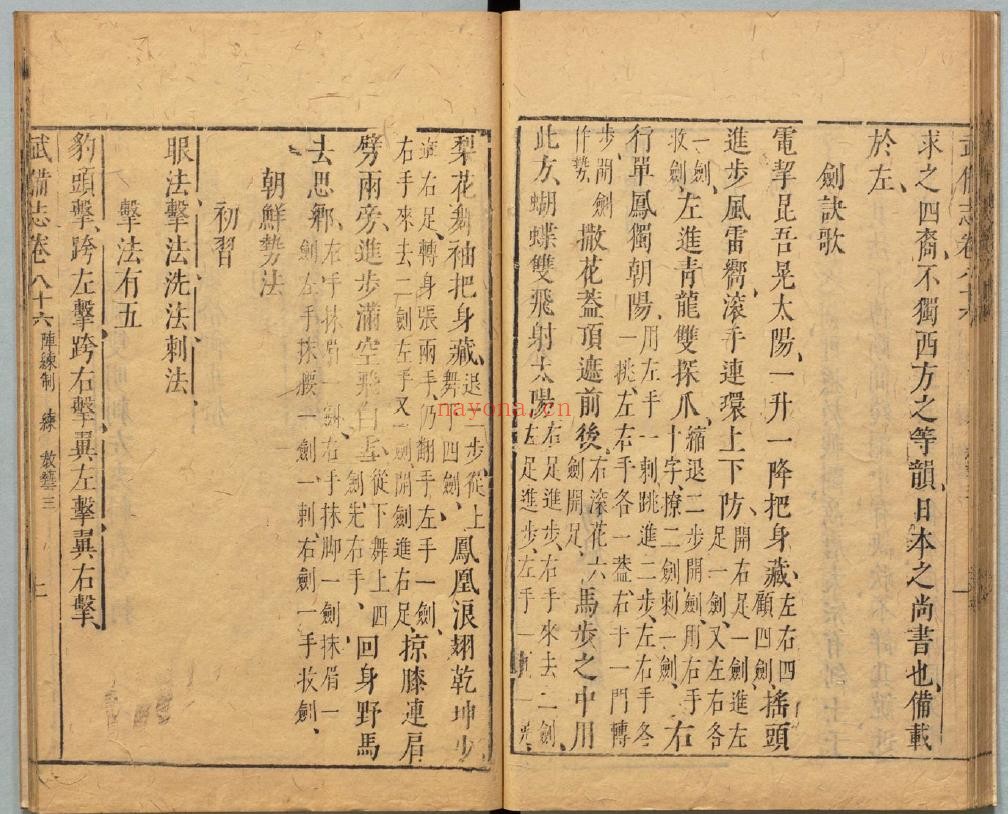 武備志卷八十六
求之四裔不獨西方之等韻日本之尚書也備載
於左
劍訣歌
電掣昆吾晃太陽一升一降把身藏左右四顧四劍搖頭
進步風雷嚮滾手連環上下防開右足一劍進左足一劍又左右各
一劍收劍左進青龍雙探爪縮退二步開劍用右手十字撩二劍刺一劍右
行單鳳獨朝陽用左手一刺跳進二步左右手各一挑左右手各一蓋右手一門轉
步開劍作勢撒花蓋頂遮前後右滾花六劍開足馬步之中用
此方蝴蝶雙飛射太陽右足進步右手來去二劍左足進步左手一
梨花舞袖把身藏退二步從上舞下四劍鳳凰浪翅乾坤少
進右足轉身張兩手仍翻手左手一劍右手來去二劍左手又一劍開劍進右足掠膝連肩
劈兩旁進步滿空飛白從下舞上四劍先右手回身野馬
去思鄉右手抹眉一劍右手抹脚一劍抹眉一劍左手抹腰一劍一刺右劍一手收劍
朝鮮勢法
初習
眼法擊法洗法刺法
擊法有五
豹頭擊跨左擊跨右擊翼左擊翼右擊
武備志卷八十六 陣練制 練 教藝三 七
nayona.cn